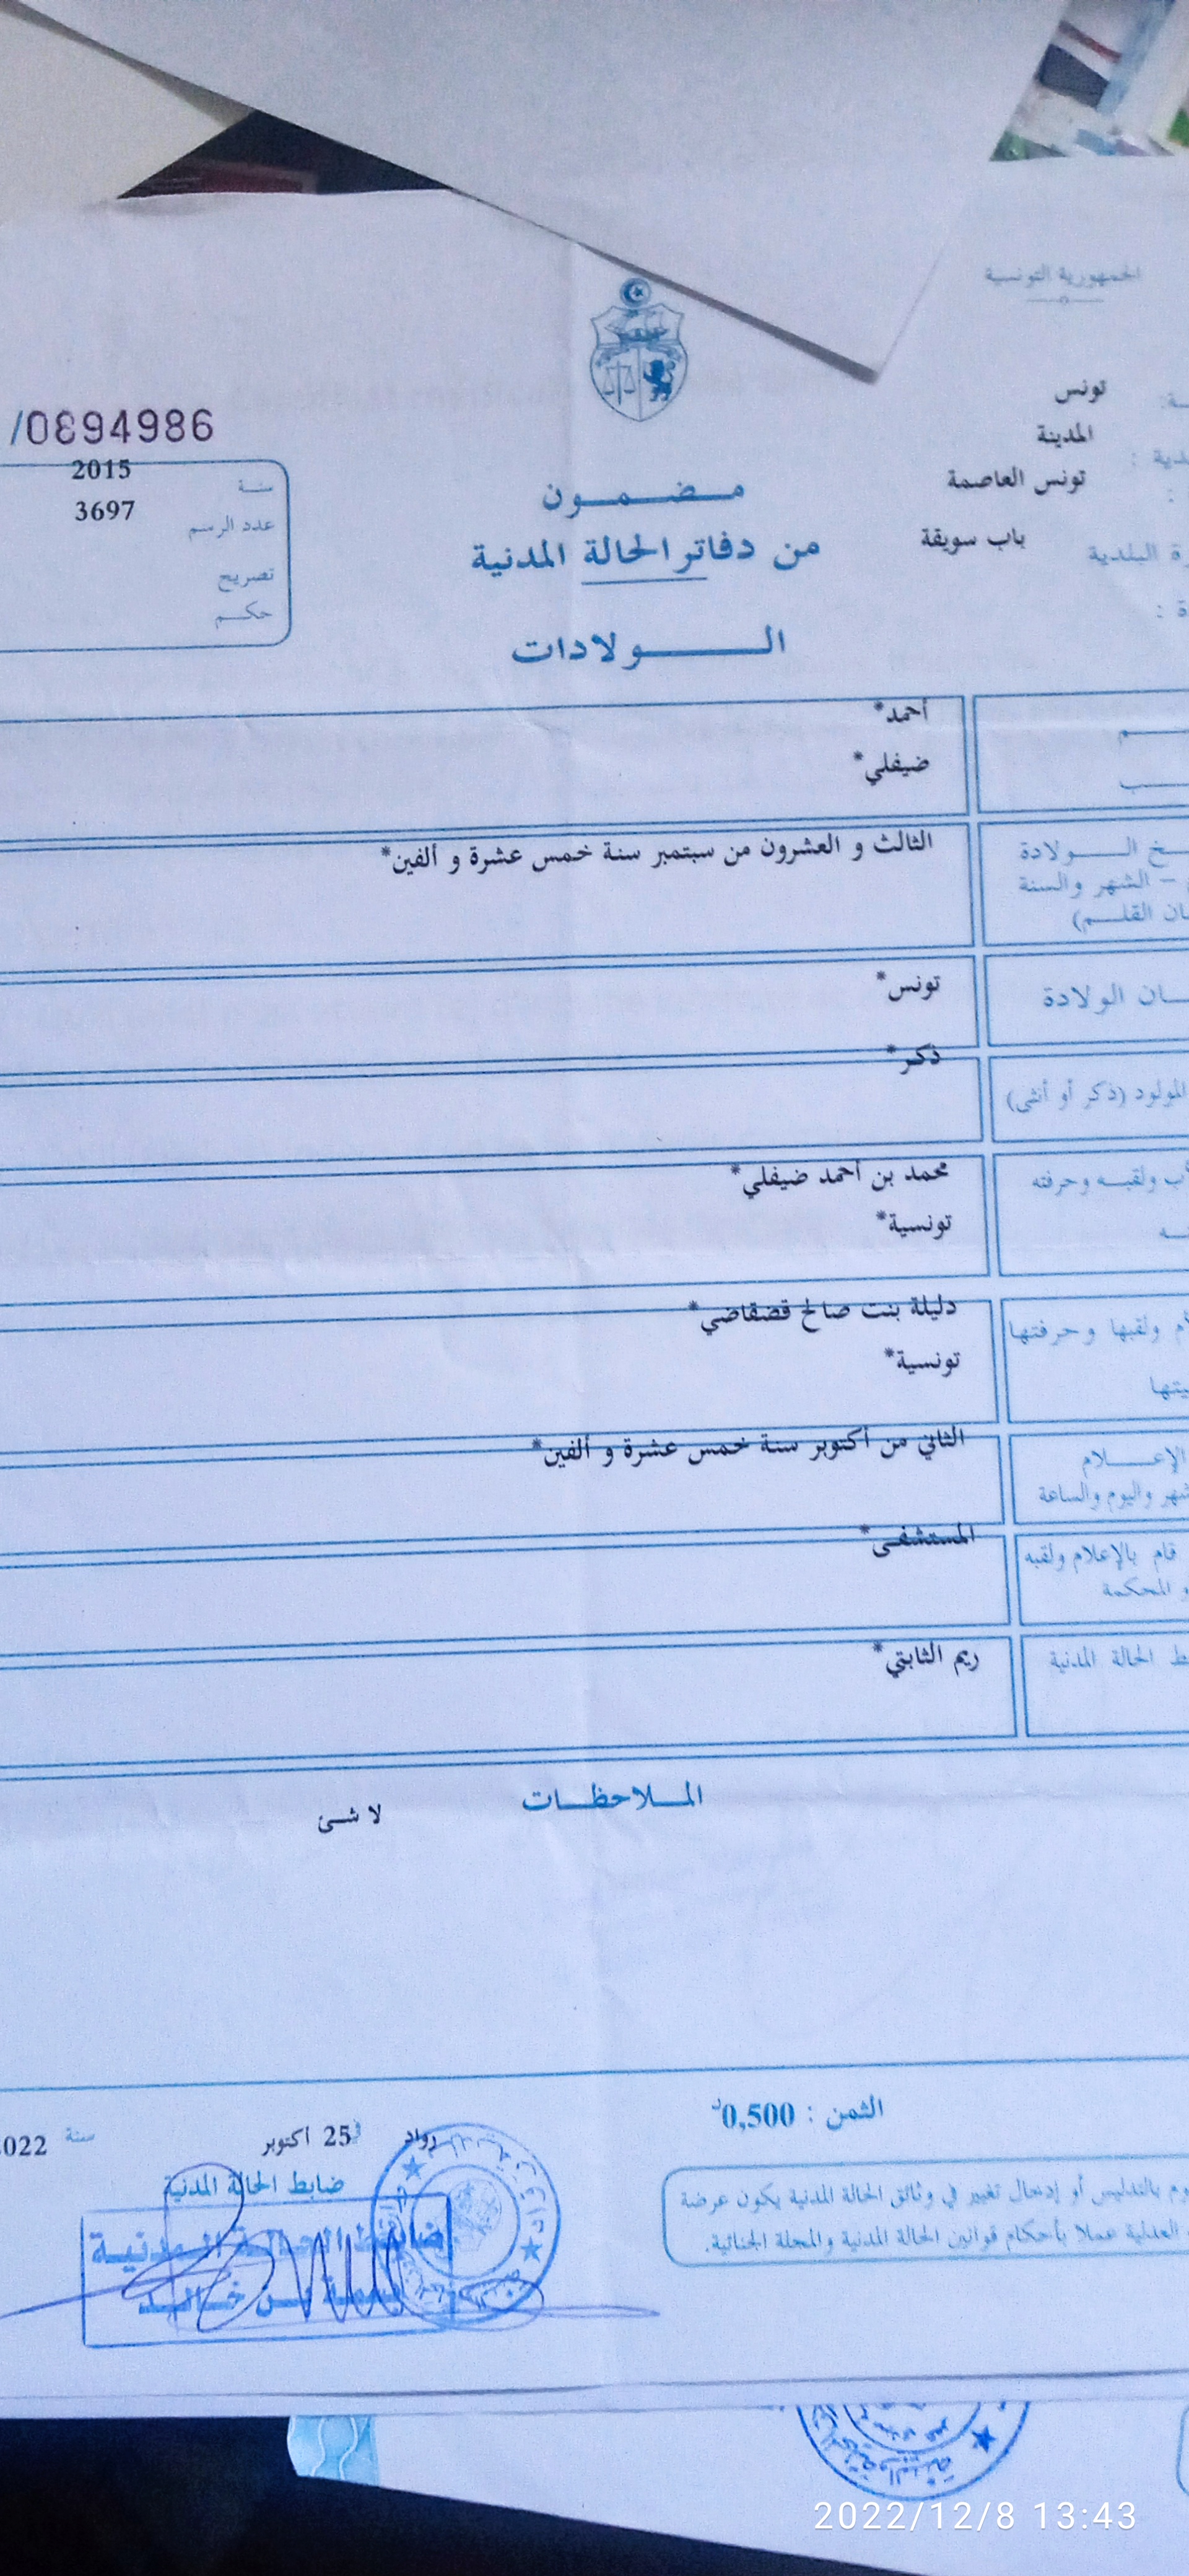 الجمهورية التونسية
تونس
المدينة
تونس العاصمة
باب سويقة
البلدية
/0894986
سنة 2015
عدد الرسم 3697
تصريح
حكم
مضمون
من دفاتر الحالة المدنية
الولادات
أحمد*
ضيفلي*
الولادة
– الشهر والسنة
القلم)
الثالث و العشرون من سبتمبر سنة خمس عشرة و ألفين*
الولادة
تونس*
المولود (ذكر أو أنثى)
ذكر*
ولقبه وحرفته
محمد بن أحمد ضيفلي*
تونسية*
ولقبها وحرفتها
دليلة بنت صالح قضقاضي*
تونسية*
الإعلام
واليوم والساعة
الثاني من أكتوبر سنة خمس عشرة و ألفين*
قام بالإعلام ولقبه
المحكمة
المستشفى*
الحالة المدنية
ريم الثابتي*
الملاحظات
لا شئ
الثمن : 0,500د
رواد في 25 اكتوبر سنة 022
ضابط الحالة المدنية
ضابط الحالة المدنية
بالتدليس أو إدخال تغيير في وثائق الحالة المدنية يكون عرضة
العدلية عملا بأحكام قوانين الحالة المدنية والمجلة الجنائية.
2022/12/8 13:43